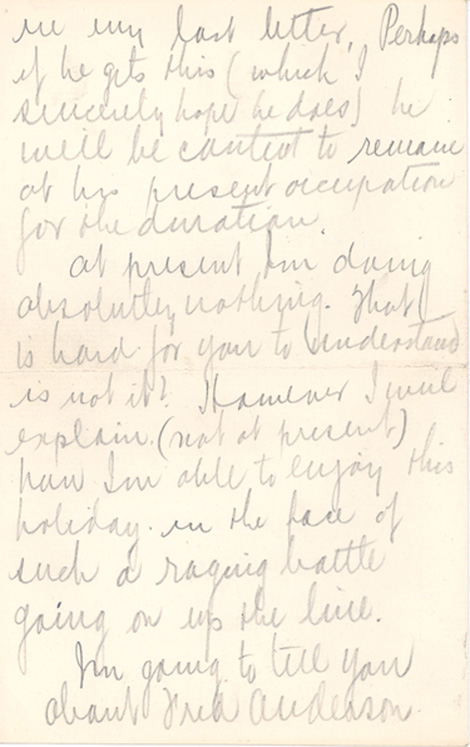 in my last letter. Perhaps
if he gets this (which I
sincerely hope he does) he
will be content to remain
at his present occupation
for the duration.
At present Im doing
absolutely nothing. That
is hard for you to understand
is not it? However I will
explain (not at present)
how Im able to enjoy this
holiday in the face of
such a raging battle
going on up the line.
Im going to tell you
about Fred Anderson.